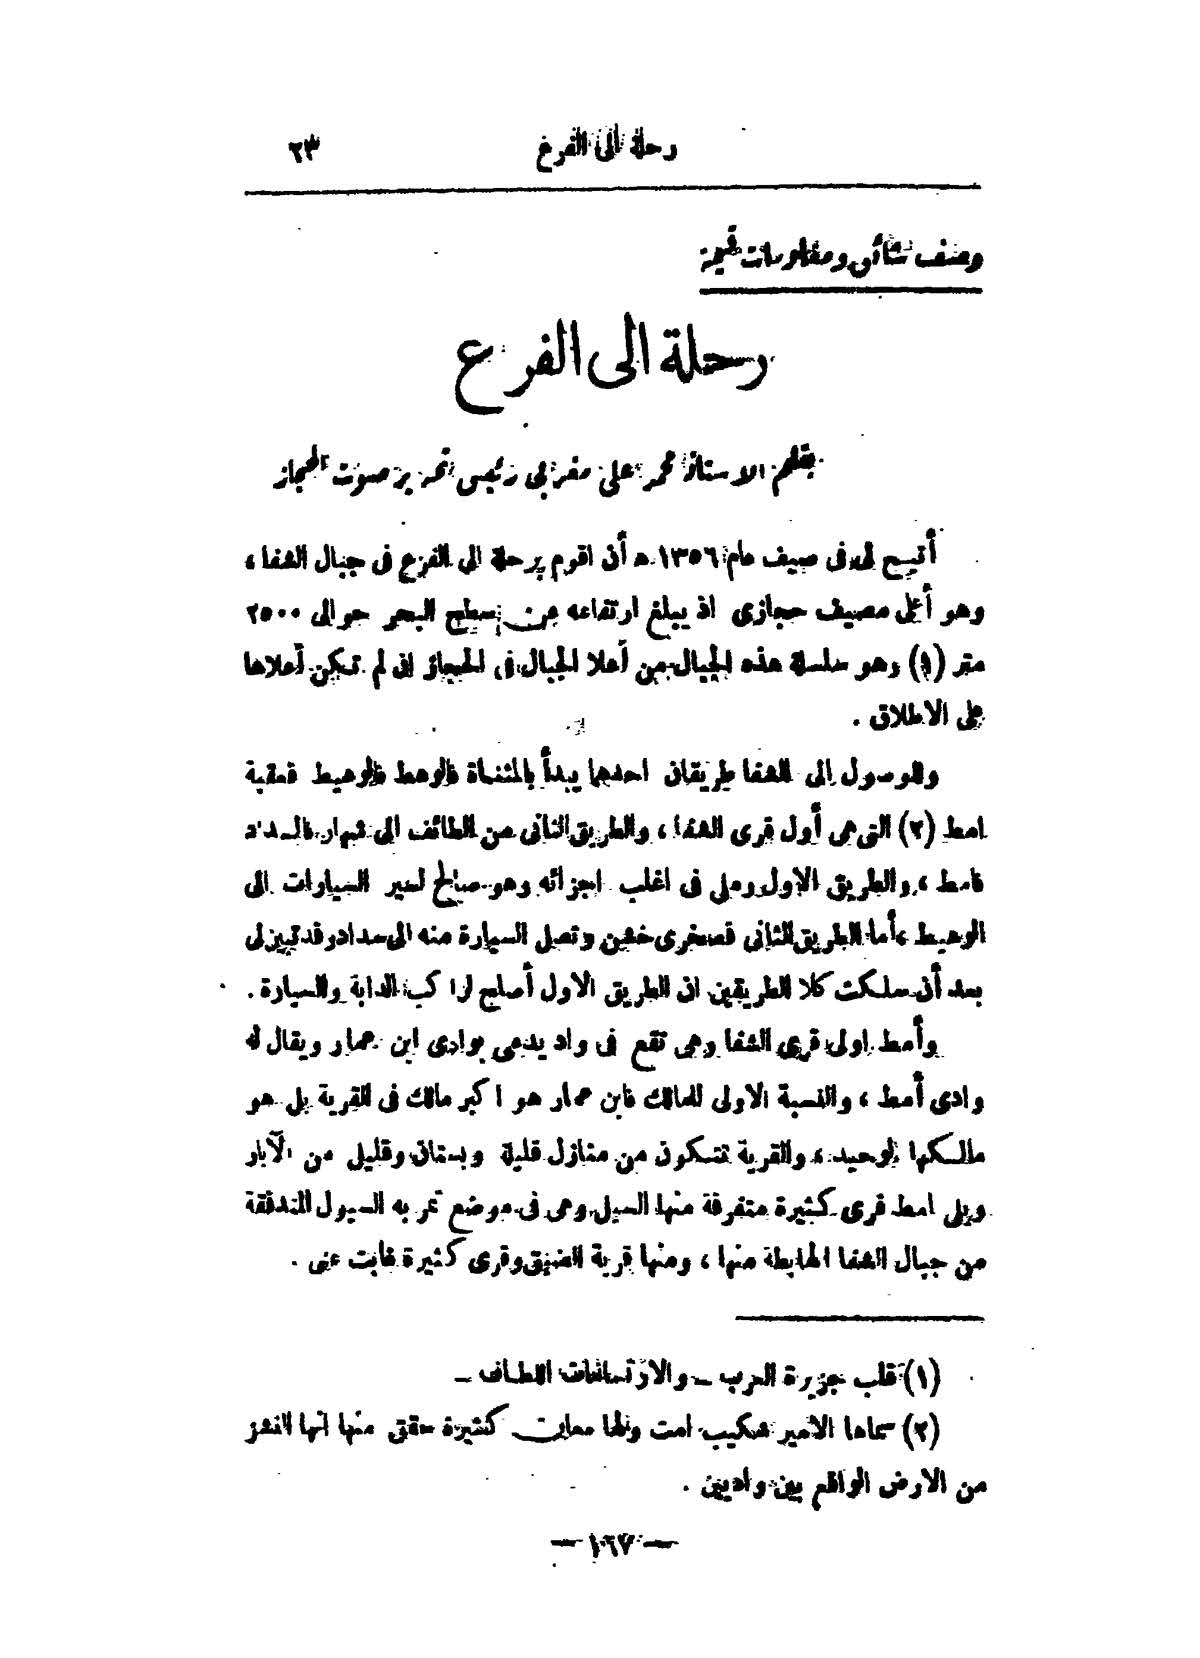 رحلة الى الفرع ٢٣
وصف شائق ومعلومات قيمة
رحلة الى الفرع
بقلم الاستاذ محمد على مغربى رئيس تحرير صوت الحجاز
أتيح لى فى صيف عام ١٣٥٦ ه أن اقوم برحلة الى الفرع فى جبال الشفا ،
وهو أعلى مصيف حجازى اذ يبلغ ارتفاعه عن سطح البحر حوالى ٢٥٠٠
متر (١) وهو سلسلة هذه الجبال من أعلا الجبال فى الحجاز ان لم تكن أعلاها
على الاطلاق .
وللوصول الى الشفا طريقان احدهما يبدأ بالمثناة فالوهط فالوهيط فعقبة
امط (٢) التى هى أول قرى الشفا ، والطريق الثانى من الطائف الى شهار فالسداد
فامط ، والطريق الاول رملى فى اغلب اجزائه وهو صالح لسير السيارات الى
الوهيط ، أما الطريق الثانى فصخرى خشن وتصل السيارة منه الى سداد وقد تبين لى
بعد أن سلكت كلا الطريقين ان الطريق الاول أصلح لراكب الدابة والسيارة .
وأمط اولى قرى الشفا وهى تقع فى واد يدعى بوادى ابن عمار ويقال له
وادى أمط ، والنسبة الاولى للمالك فابن عمار هو اكبر مالك فى القرية بل هو
مالكها الوحيد ، والقرية تتكون من منازل قليلة وبستان وقليل من الآبار
ويلى امط قرى كثيرة متفرقة منها السيل وهى فى موضع تمر به السيول المتدفقة
من جبال الشفا الهابطة منها ، ومنها قرية الضيق وقرى كثيرة غابت عنى .
(١) قلب جزيرة العرب ــ والارتسامات اللطاف ــ
(٢) سماها الأمير شكيب امت ولها معان كثيرة حقق منها انها النشز
من الارض الواقع بين واديين .
— ١٦٧ —